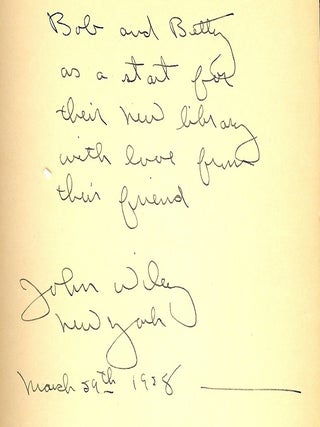 Bob and Betty
as a start for
their new library
with love from
their friend
John Wiley
New York
March 29th 1928